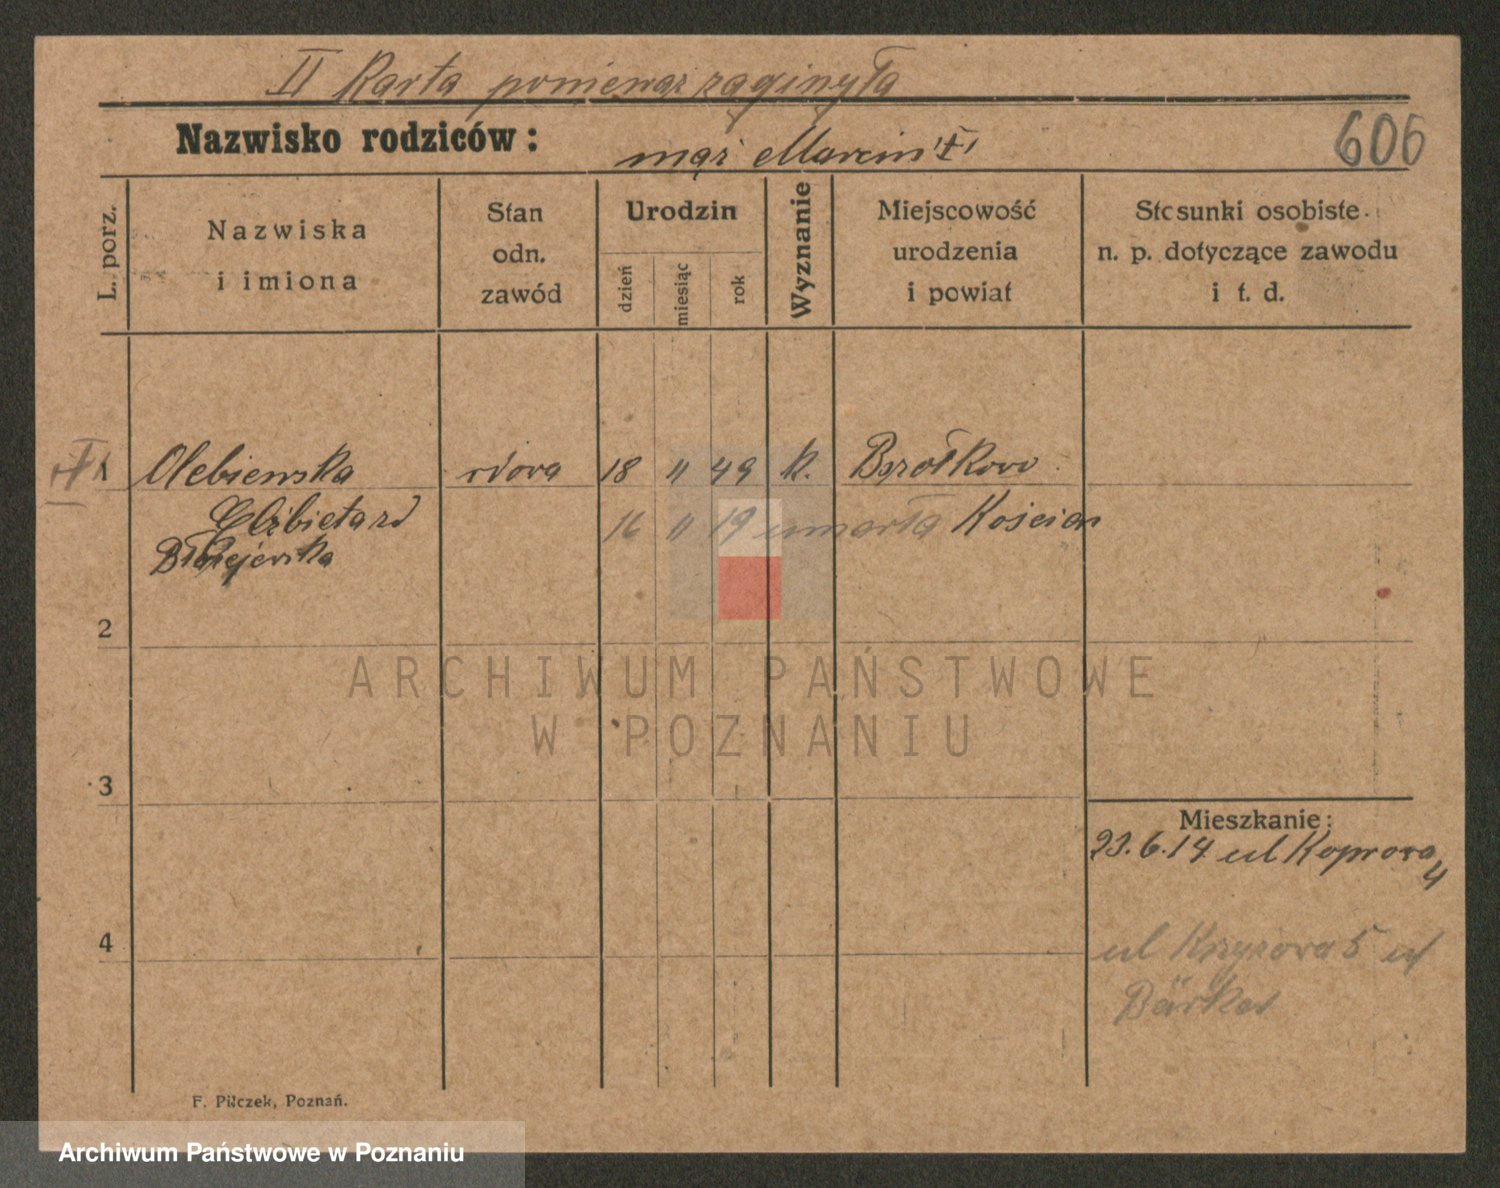 II Karta ponieważ zaginęła
Nazwisko rodziców: mąż Marcin
606
L. porz.
Nazwiska
i imiona
Stan
odn.
zawód
Urodzin
dzień
miesiąc
rok
Wyznanie
Miejscowość
urodzenia
i powiat
Stosunki osobiste
n. p. dotyczące zawodu
i t. d.
1 Olebiewska wdowa 18 11 49 k.
Elżbieta zd 16 11 19 umarła Kościan
2
3
4
Mieszkanie:
23.6.14 ul
4
ul Krzyżowa 5 u
F. Pilczek, Poznań.
ARCHIWUM PAŃSTWOWE
W POZNANIU
Archiwum Państwowe w Poznaniu